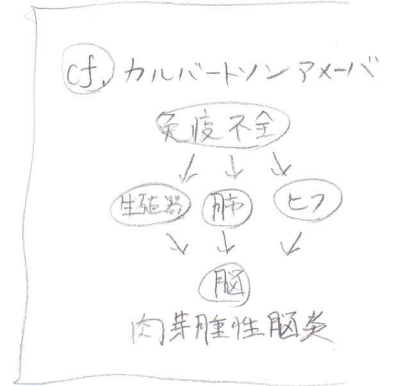 cf. カルバートソンアメーバ
免疫不全
生殖器 肺 ヒフ
脳
肉芽腫性脳炎